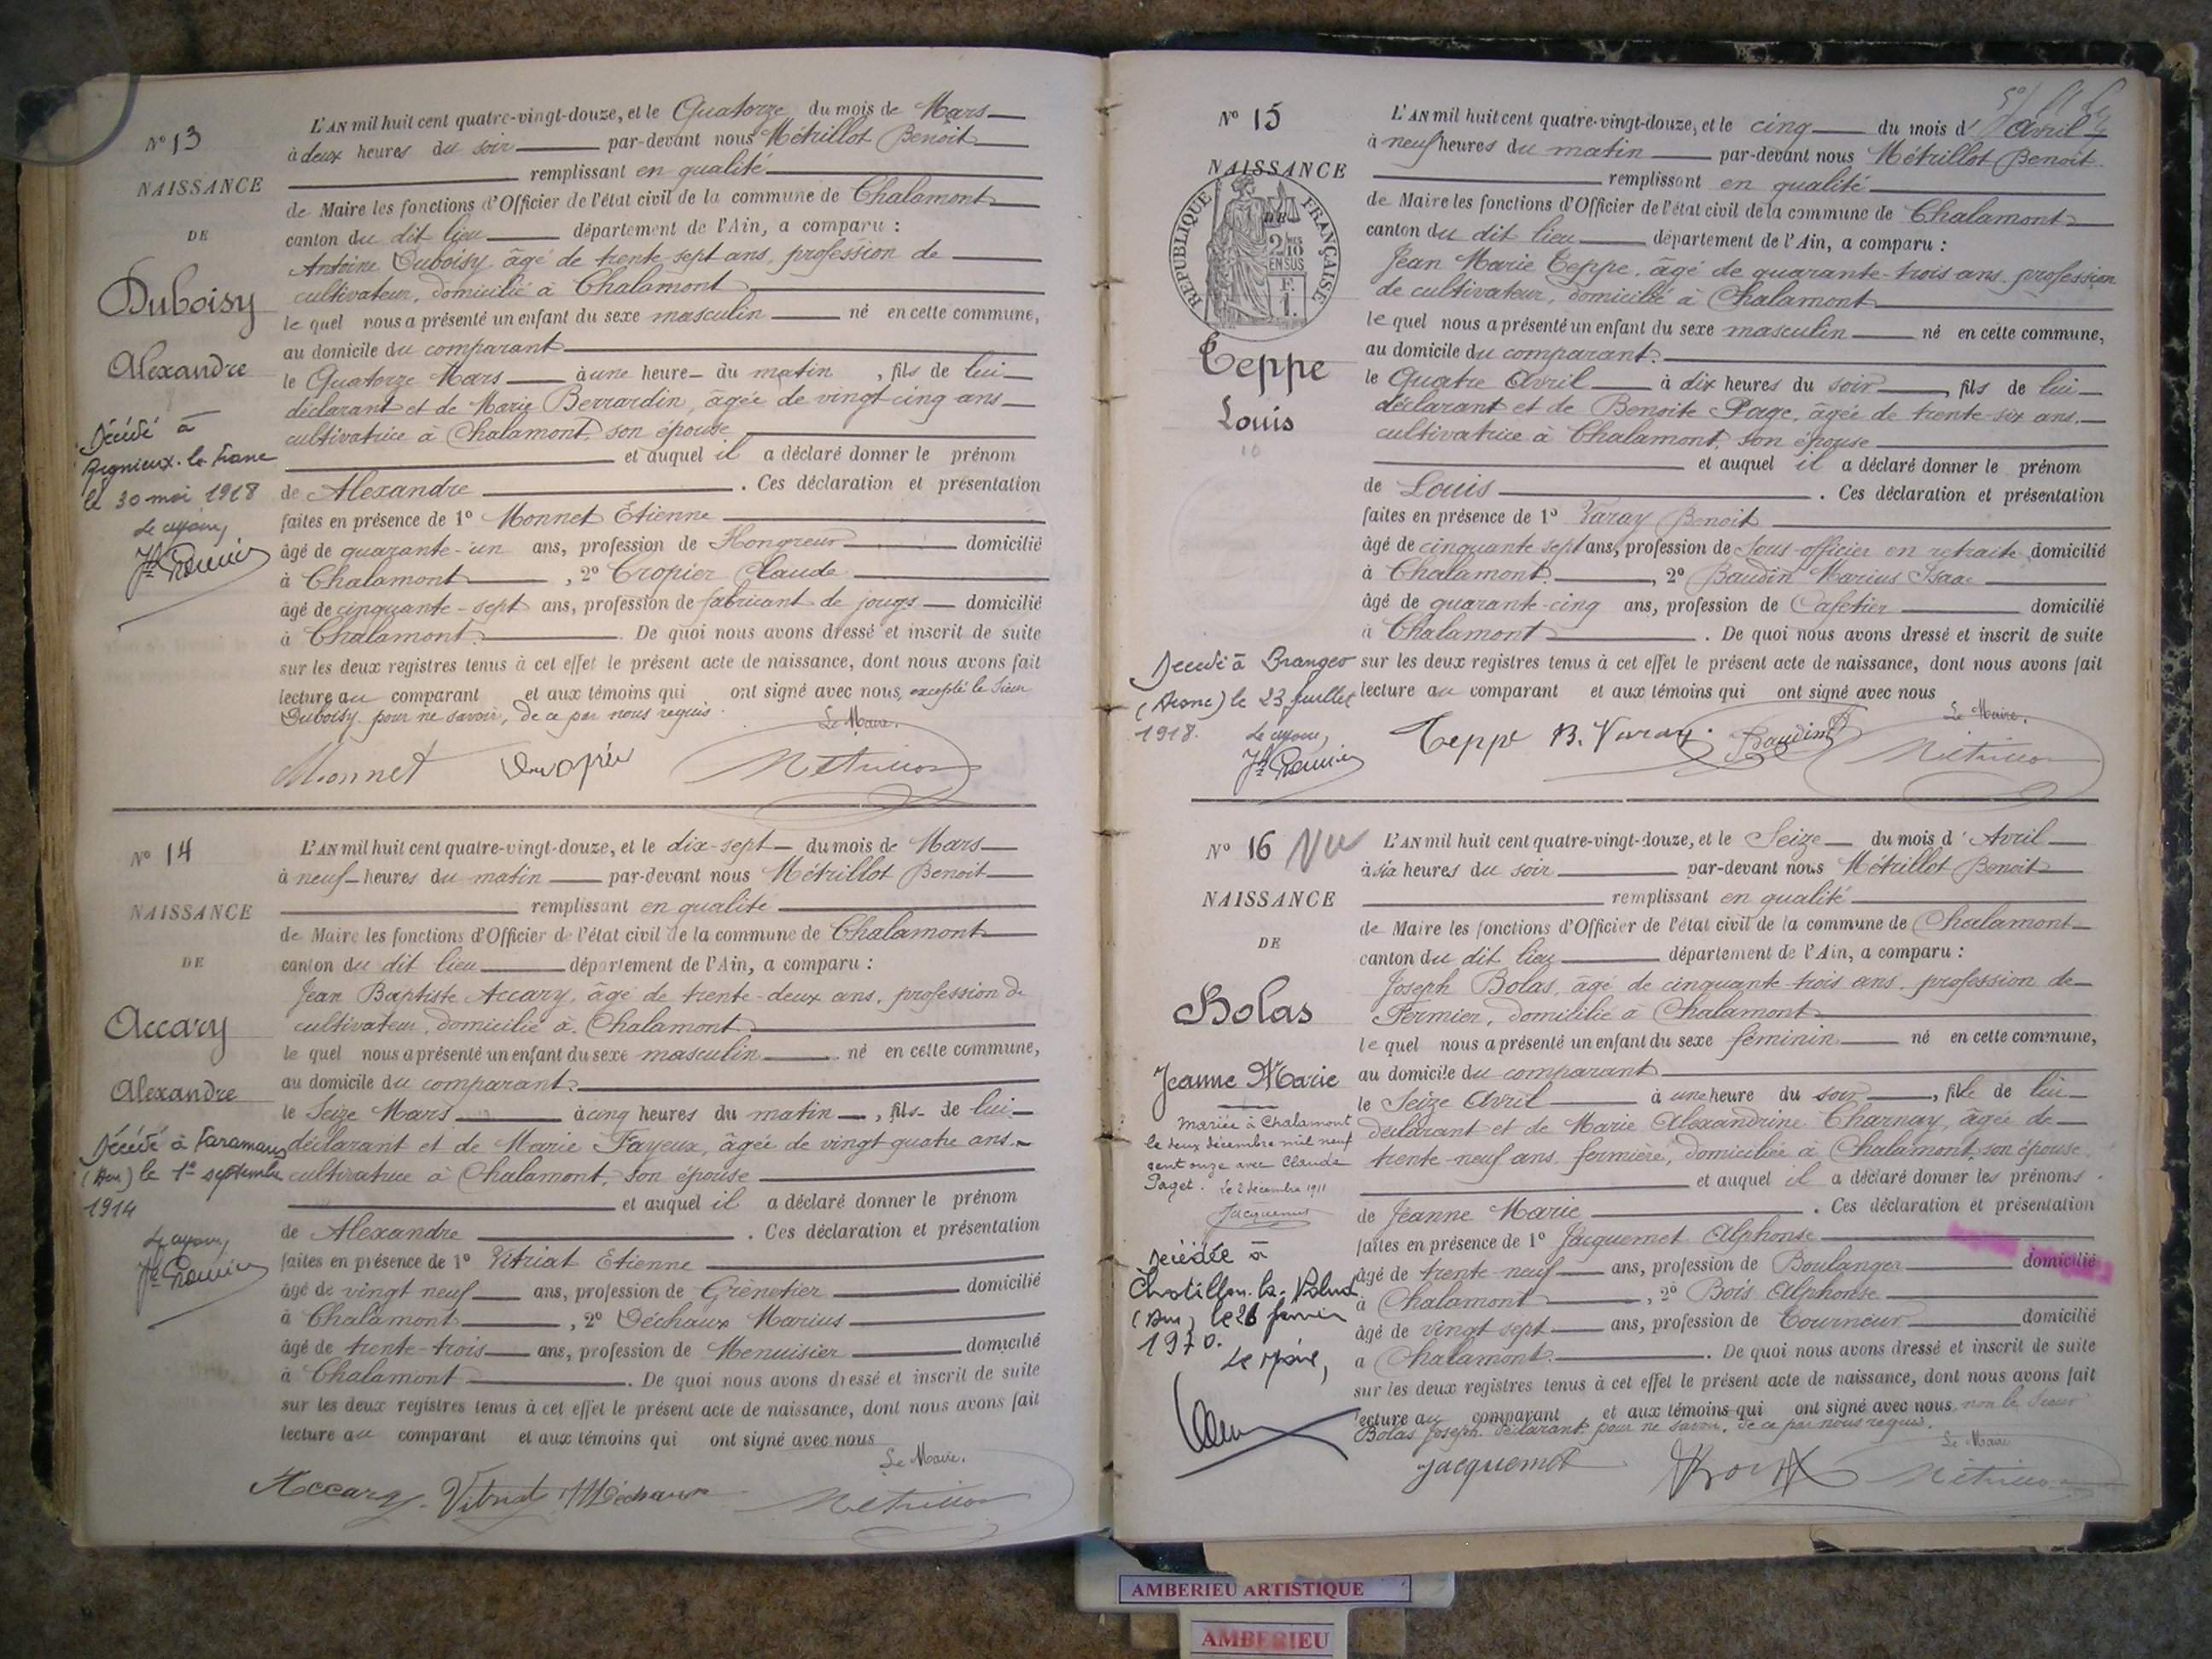 N° 13
NAISSANCE
DE
Duboisy
Alexandre
Décédé à
Rignieux-le-Franc
le 30 mai 1918
L'AN mil huit cent quatre-vingt-douze, et le Quatorze du mois de Mars
à deux heures du soir par-devant nous Métrillot Benoit
remplissant en qualité
de Maire les fonctions d'Officier de l'état civil de la commune de Chalamont
canton du dit lieu département de l'Ain, a comparu :
Antoine Duboisy âgé de trente-sept ans, profession de
cultivateur, domicilié à Chalamont
le quel nous a présenté un enfant du sexe masculin né en cette commune,
au domicile du comparant
le Quatorze Mars à une heure du matin, fils de lui
déclarant et de Marie Berrardin, âgée de vingt cinq ans
cultivatrice à Chalamont, son épouse
et auquel il a déclaré donner le prénom
de Alexandre. Ces déclaration et présentation
faites en présence de 1° Monnet Etienne
âgé de quarante-un ans, profession de Hongreur domicilié
à Chalamont, 2° Tropier Claude
âgé de cinquante-sept ans, profession de fabricant de jougs domicilié
à Chalamont. De quoi nous avons dressé et inscrit de suite
sur les deux registres tenus à cet effet le présent acte de naissance, dont nous avons fait
lecture au comparant et aux témoins qui ont signé avec nous, excepté le Sieur
Duboisy pour ne savoir, de ce par nous requis.
Le Maire.
Monnet
N° 14
NAISSANCE
DE
Accary
Alexandre
Décédé à Faramans
(Ain) le 1er septembre
1914
L'AN mil huit cent quatre-vingt-douze, et le dix-sept du mois de Mars
à neuf heures du matin par-devant nous Métrillot Benoit
remplissant en qualité
de Maire les fonctions d'Officier de l'état civil de la commune de Chalamont
canton du dit lieu département de l'Ain, a comparu :
Jean Baptiste Accary, âgé de trente-deux ans, profession de
cultivateur, domicilié à Chalamont
le quel nous a présenté un enfant du sexe masculin né en cette commune,
au domicile du comparant
le Seize Mars à cinq heures du matin, fils de lui
déclarant et de Marie Fayeux, âgée de vingt quatre ans
cultivatrice à Chalamont, son épouse
et auquel il a déclaré donner le prénom
de Alexandre. Ces déclaration et présentation
faites en présence de 1° Vitriat Etienne
âgé de vingt neuf ans, profession de Grènetier domicilié
à Chalamont, 2° Déchaux Marius
âgé de trente-trois ans, profession de Menuisier domicilié
à Chalamont. De quoi nous avons dressé et inscrit de suite
sur les deux registres tenus à cet effet le présent acte de naissance, dont nous avons fait
lecture au comparant et aux témoins qui ont signé avec nous
Le Maire.
Accary Vitriat M Déchaux
N° 15
NAISSANCE
DE
RÉPUBLIQUE FRANÇAISE
2/10
EN SUS
Teppe
Louis
Décédé à Branges
le 23 juillet
1918.
L'AN mil huit cent quatre-vingt-douze, et le cinq du mois d'avril
à neuf heures du matin par-devant nous Métrillot Benoit
remplissant en qualité
de Maire les fonctions d'Officier de l'état civil de la commune de Chalamont
canton du dit lieu département de l'Ain, a comparu :
Jean Marie Teppe, âgé de quarante-trois ans, profession
de cultivateur, domicilié à Chalamont
le quel nous a présenté un enfant du sexe masculin né en cette commune,
au domicile du comparant.
le Quatre Avril à dix heures du soir, fils de lui
déclarant et de Benoite Page, âgée de trente six ans,
cultivatrice à Chalamont, son épouse
et auquel il a déclaré donner le prénom
de Louis. Ces déclaration et présentation
faites en présence de 1° Varay Benoit
âgé de cinquante sept ans, profession de Sous-officier en retraite domicilié
à Chalamont, 2° Baudin Marius Isaac
âgé de quarante-cinq ans, profession de Cafetier domicilié
à Chalamont. De quoi nous avons dressé et inscrit de suite
sur les deux registres tenus à cet effet le présent acte de naissance, dont nous avons fait
lecture au comparant et aux témoins qui ont signé avec nous
Le Maire.
Teppe B. Varay Baudin
N° 16 Vu
NAISSANCE
DE
Bolas
Jeanne Marie
mariée à Chalamont
le deux décembre mil neuf
cent onze avec Claude
Paget. le 2 décembre 1911
Jacquemet
Décédée à
Chatillon-la-Palud
(Ain) le 26 janvier
1970.
Le Maire,
L'AN mil huit cent quatre-vingt-douze, et le Seize du mois d'Avril
à six heures du soir par-devant nous Métrillot Benoit
remplissant en qualité
de Maire les fonctions d'Officier de l'état civil de la commune de Chalamont
canton du dit lieu département de l'Ain, a comparu :
Joseph Bolas, âgé de cinquante-trois ans, profession de
Fermier, domicilié à Chalamont
le quel nous a présenté un enfant du sexe féminin né en cette commune,
au domicile du comparant
le Seize Avril à une heure du soir, fille de lui
déclarant et de Marie Alexandrine Charnay, âgée de
trente-neuf ans, fermière, domiciliée à Chalamont, son épouse
et auquel il a déclaré donner les prénoms
de Jeanne Marie. Ces déclaration et présentation
faites en présence de 1° Jacquemet Alphonse
âgé de trente-neuf ans, profession de Boulanger domicilié
à Chalamont, 2° Bois Alphonse
âgé de vingt sept ans, profession de Tourneur domicilié
à Chalamont. De quoi nous avons dressé et inscrit de suite
sur les deux registres tenus à cet effet le présent acte de naissance, dont nous avons fait
lecture au comparant et aux témoins qui ont signé avec nous, non le Sieur
Bolas Joseph déclarant pour ne savoir, de ce par nous requis.
Le Maire
Jacquemet
AMBERIEU ARTISTIQUE
AMBERIEU